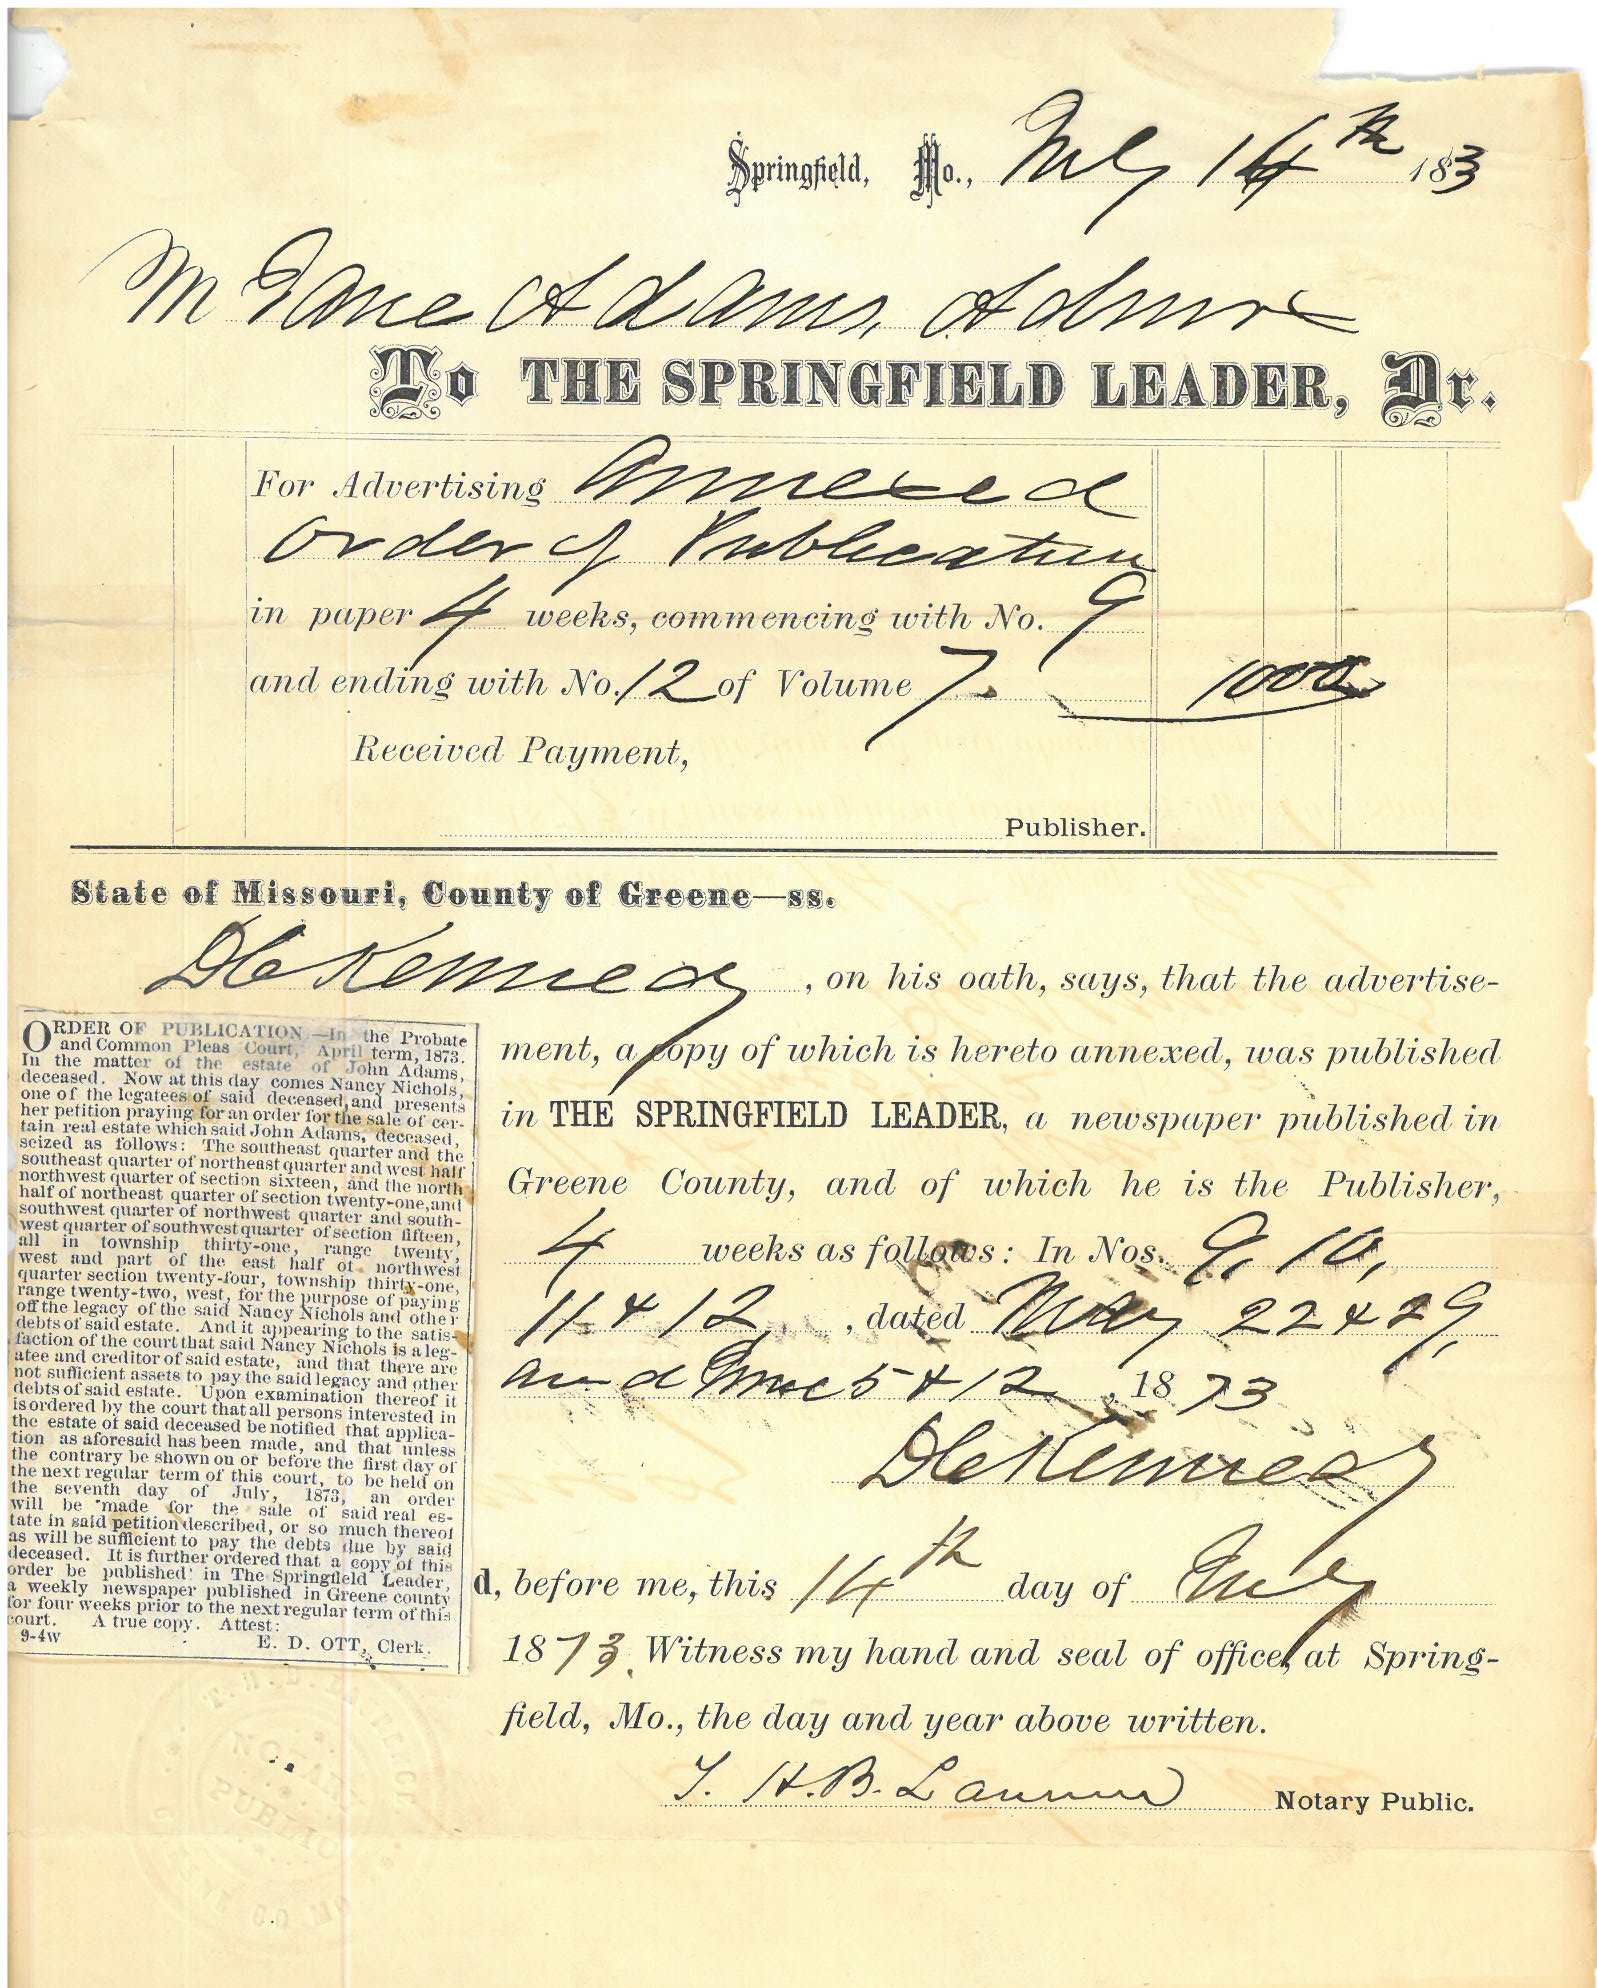 Springfield, Mo., July 14th 183
M Jane Adams, Admrx
To THE SPRINGFIELD LEADER, Dr.
For Advertising annexed
Order of Publication
in paper 4 weeks, commencing with No. 9
and ending with No. 12 of Volume 7. 1000
Received Payment,
Publisher.
State of Missouri, County of Greene—ss.
D C Kennedy, on his oath, says, that the advertise-
ment, a copy of which is hereto annexed, was published
in THE SPRINGFIELD LEADER, a newspaper published in
Greene County, and of which he is the Publisher,
4 weeks as follows: In Nos. 9, 10,
11 & 12, , dated May 22 & 29,
and June 5 & 12, 1873
D C Kennedy
d, before me, this 14th day of July
1873. Witness my hand and seal of office, at Spring-
field, Mo., the day and year above written.
T. H. B. Notary Public.
ORDER OF PUBLICATION.—In the Probate
and Common Pleas Court, April term, 1873.
In the matter of the estate of John Adams,
deceased. Now at this day comes Nancy Nichols,
one of the legatees of said deceased, and presents
her petition praying for an order for the sale of cer-
tain real estate which said John Adams, deceased,
seized as follows: The southeast quarter and the
southeast quarter of northeast quarter and west half
northwest quarter of section sixteen, and the north
half of northeast quarter of section twenty-one, and
southwest quarter of northwest quarter and south-
west quarter of southwest quarter of section fifteen,
all in township thirty-one, range twenty,
west and part of the east half of northwest
quarter section twenty-four, township thirty-one,
range twenty-two, west, for the purpose of paying
off the legacy of the said Nancy Nichols and other
debts of said estate. And it appearing to the satis-
faction of the court that said Nancy Nichols is a leg-
atee and creditor of said estate, and that there are
not sufficient assets to pay the said legacy and other
debts of said estate. Upon examination thereof it
is ordered by the court that all persons interested in
the estate of said deceased be notified that applica-
tion as aforesaid has been made, and that unless
the contrary be shown on or before the first day of
the next regular term of this court, to be held on
the seventh day of July, 1873, an order
will be made for the sale of said real es-
tate in said petition described, or so much thereof
as will be sufficient to pay the debts due by said
deceased. It is further ordered that a copy of this
order be published in The Springfield Leader,
a weekly newspaper published in Greene county
for four weeks prior to the next regular term of this
court. A true copy. Attest:
9-4w E. D. OTT, Clerk.
NOTARY
PUBLIC